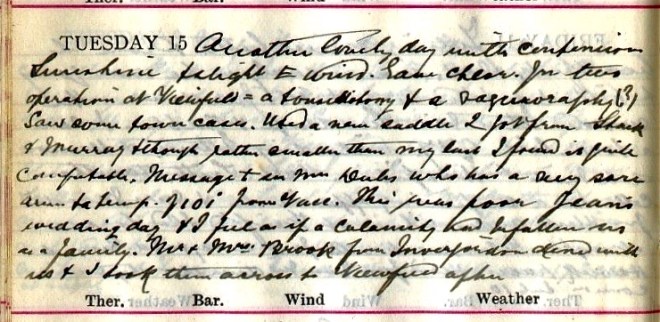 Ther. Bar. Wind Weather
TUESDAY 15 Another lovely day with continuous
Sunshine & slight E wind. Gave chlor. for two
operations at Viewfield = a tonsillotomy & a (?)
Saw some town cases. Used a new saddle I got from
& Murray & though rather smaller than my last I found it quite
comfortable. Message to see Mrs who has a very sore
arm & temp. of 101 from Vacc. This was poor Jean's
wedding day & I feel as if a calamity had befallen us
as a family. Mr & Mrs. Brook from Invergordon dined with
us & I took them across to Viewfield after
Ther. Bar. Wind Weather